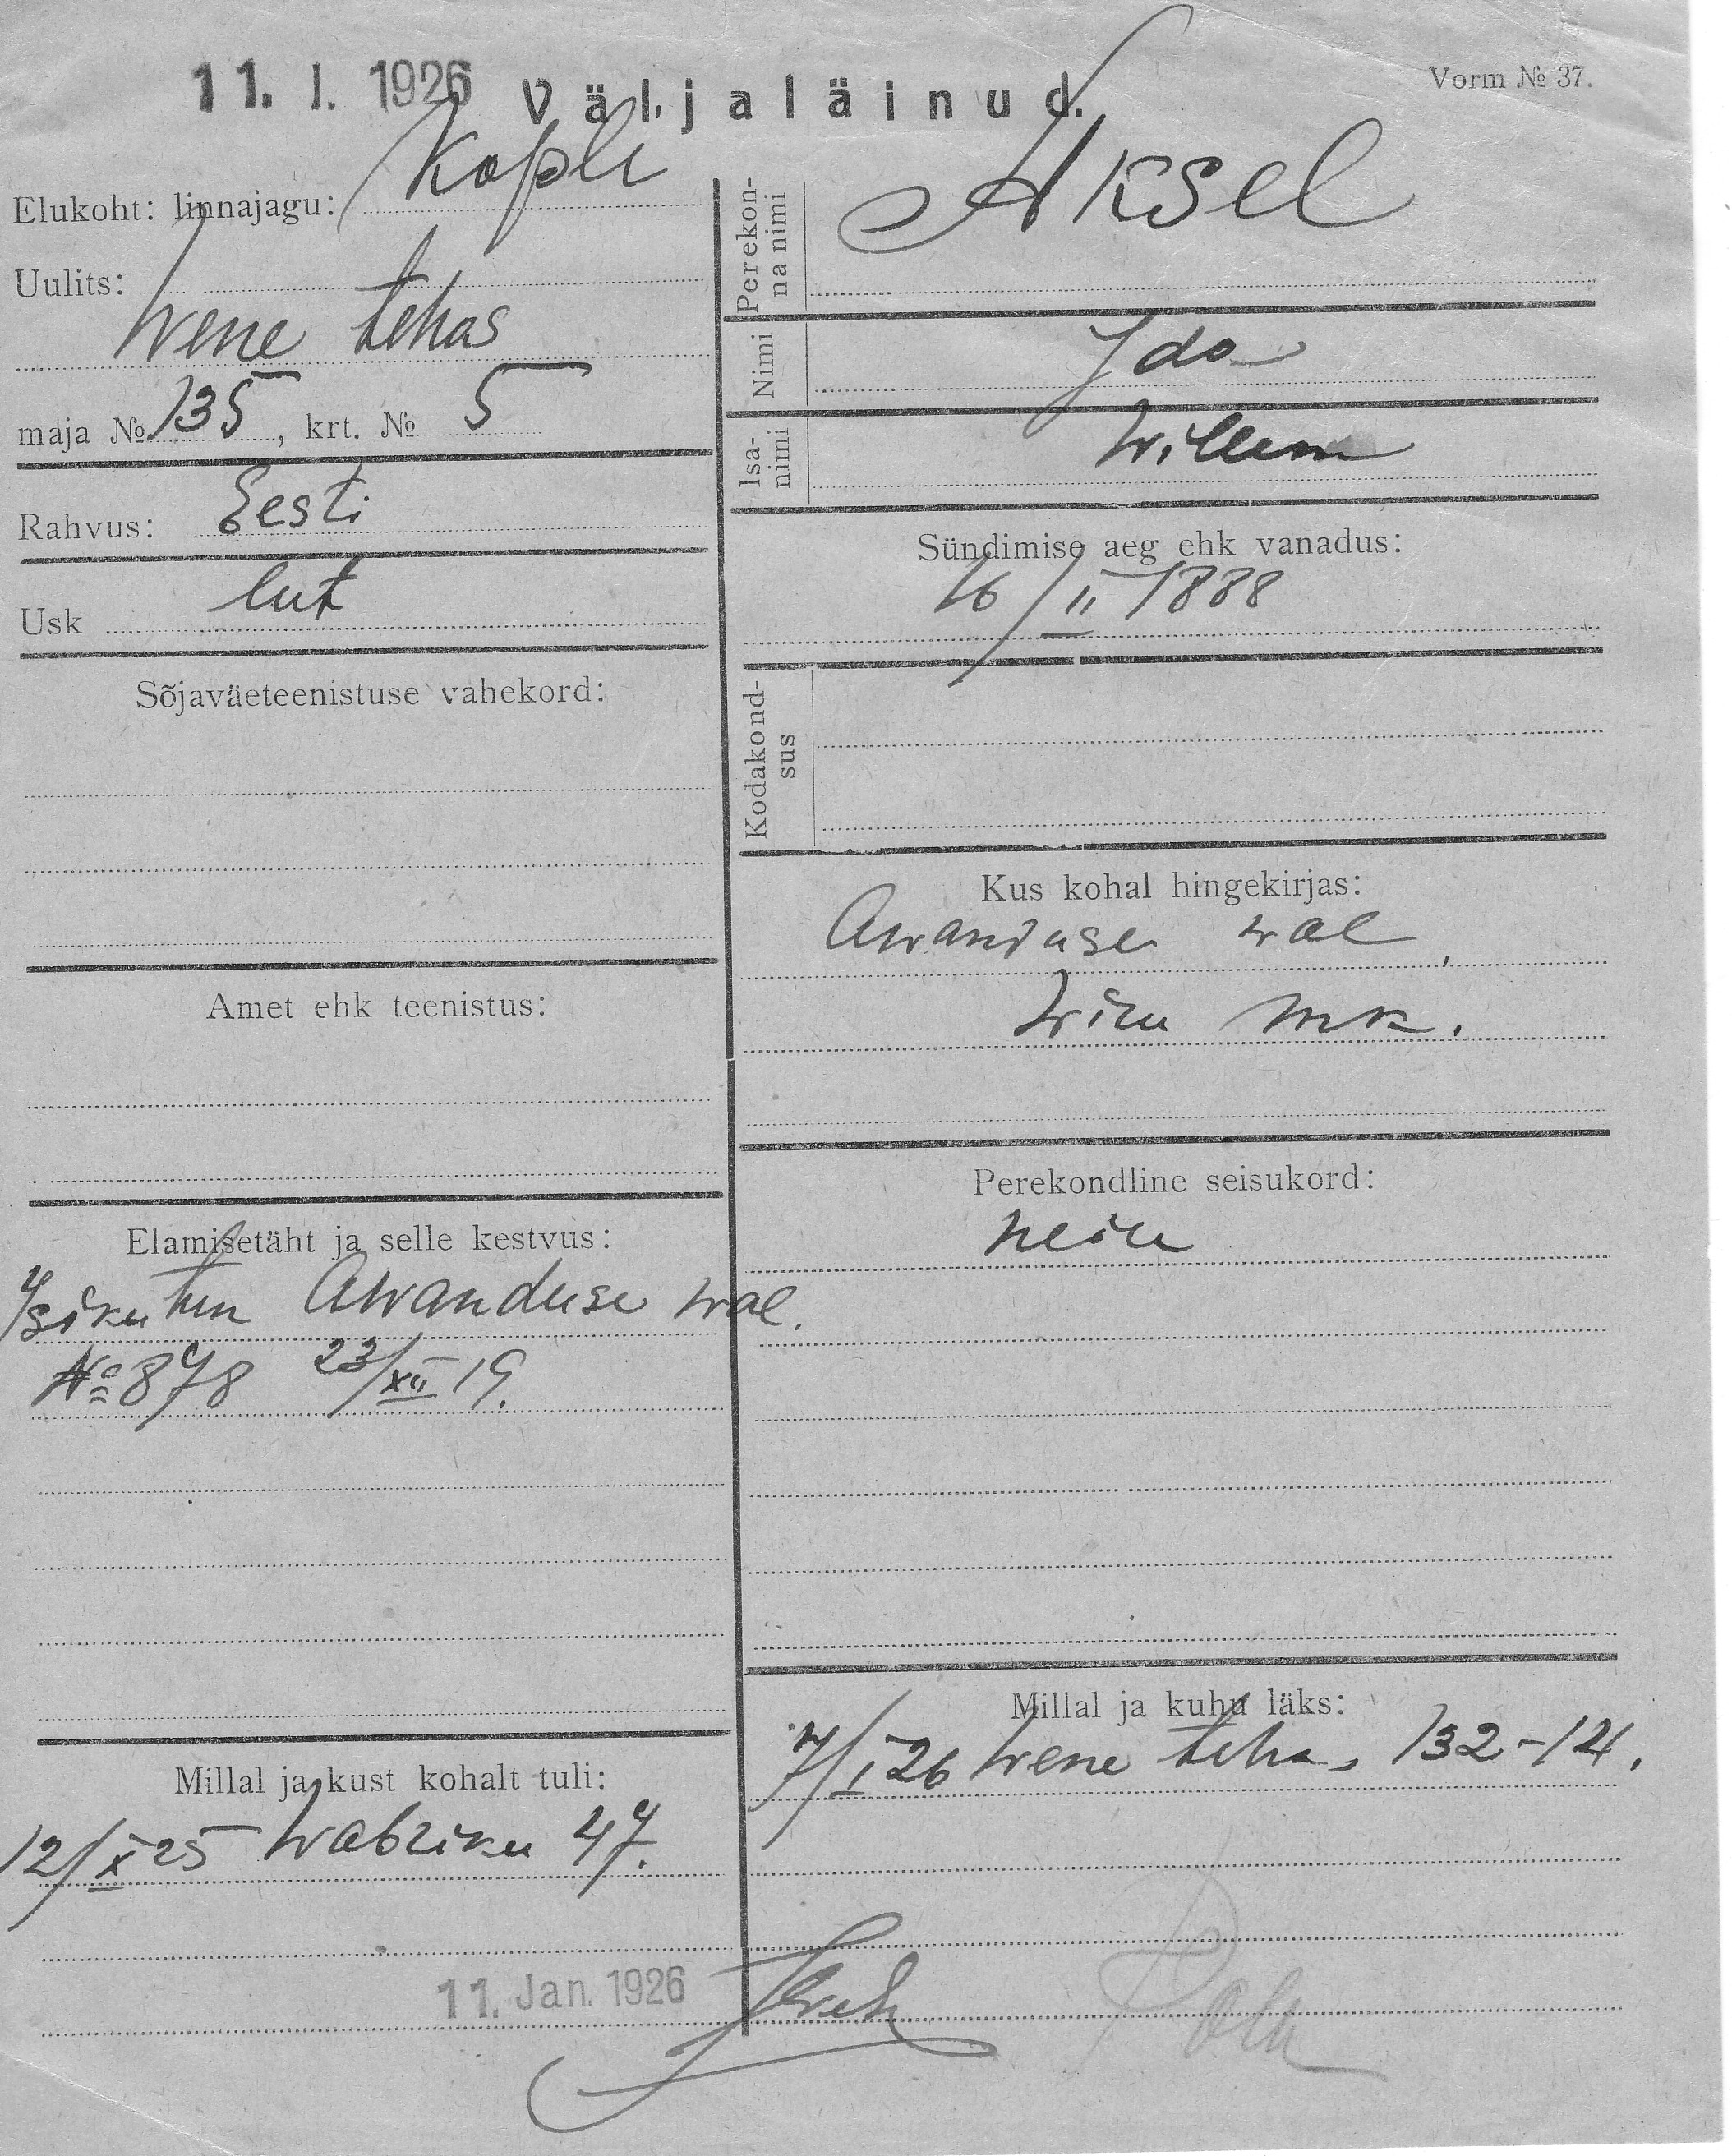 11. I. 1926 Väljaläinud.
Vorm № 37.
Elukoht: linnajagu: Kopli
Uulits:
Wene tehas
maja № 135, krt. № 5
Rahvus: Eesti
Usk lut
Sõjaväeteenistuse vahekord:
Amet ehk teenistus:
Elamisetäht ja selle kestvus:
Isiku tun Awanduse wal.
№ 878 23/XII 19.
Millal ja kust kohalt tuli:
12/X 25 Wabriku 47.
11. Jan. 1926
Perekon-
na nimi
Aksel
Nimi Ida
Isa-
nimi
Willem
Sündimise aeg ehk vanadus:
16/II 1888
Kodakond-
sus
Kus kohal hingekirjas:
Awanduse wal,
Wiru mk.
Perekondline seisukord:
neiu
Millal ja kuhu läks:
7/I 26 Wene tehas 132-14.